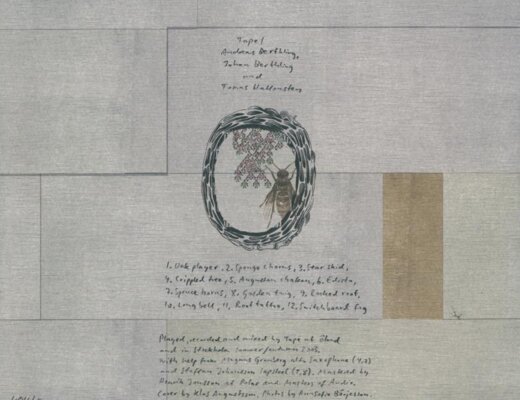 Tape /
Andreas Berthling,
Johan Berthling
and
Tomas Hallonsten
1. Oak player, 2. Sponge chorus, 3. Star skid,
4. Crippled tree, 5. Augustan chateau, 6. Edisto,
7. Spruce horns, 8. Golden twig, 9. Rocked roof,
10. Long bell, 11. Root tattoo, 12. Switchboard fog
Played, recorded and mixed by Tape at Öland
and in Stockholm
with help from Magnus Granberg alto saxophone
and Staffan Johansson lapsteel (7,8). Mastered by
Henrik Jonsson at Polar and Masters of Audio.
Cover by Klas Augustsson. Photos by AnnSofie Börjesson.